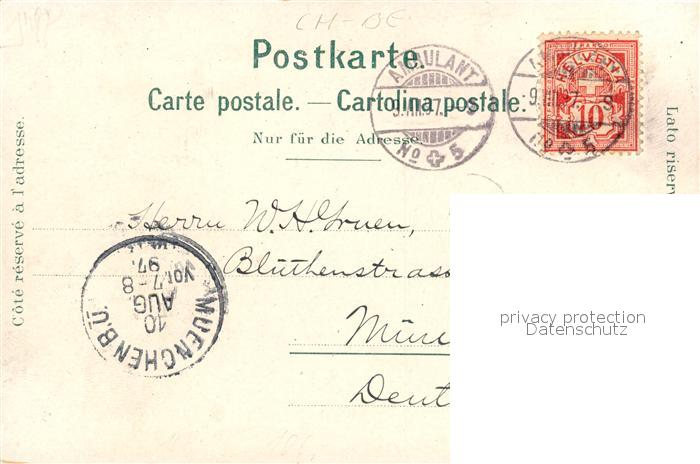 CH-BE
Postkarte.
Carte postale. — Cartolina postale.
Nur für die Adresse.
Côté réservé à l'adresse.
Lato riserv
AMBULANT
No 5
FRANCO
HELVETIA
10
9
No 5
Herrn W. H. Gruen,
Blüthenstrass
Mün
Deut
MUENCHEN B.U.
10
AUG.
Vor. 7-8
97.
privacy protection
Datenschutz